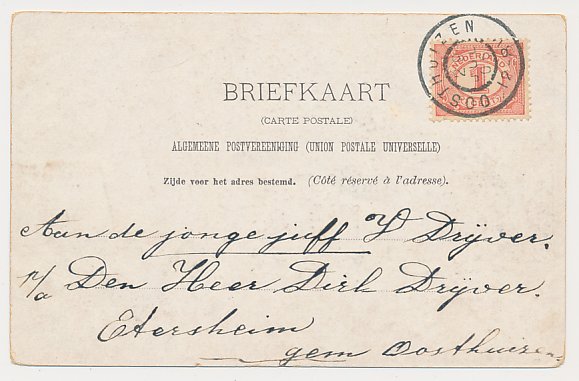 OOSTHUIZEN
1
BRIEFKAART
(CARTE POSTALE)
ALGEMEENE POSTVEREENIGING (UNION POSTALE UNIVERSELLE)
Zijde voor het adres bestemd. (Côté réservé à l'adresse).
Aan de jonge juff Y Drijver.
p/a Den Heer Dirk Drijver.
Etersheim
gem Oosthuizen